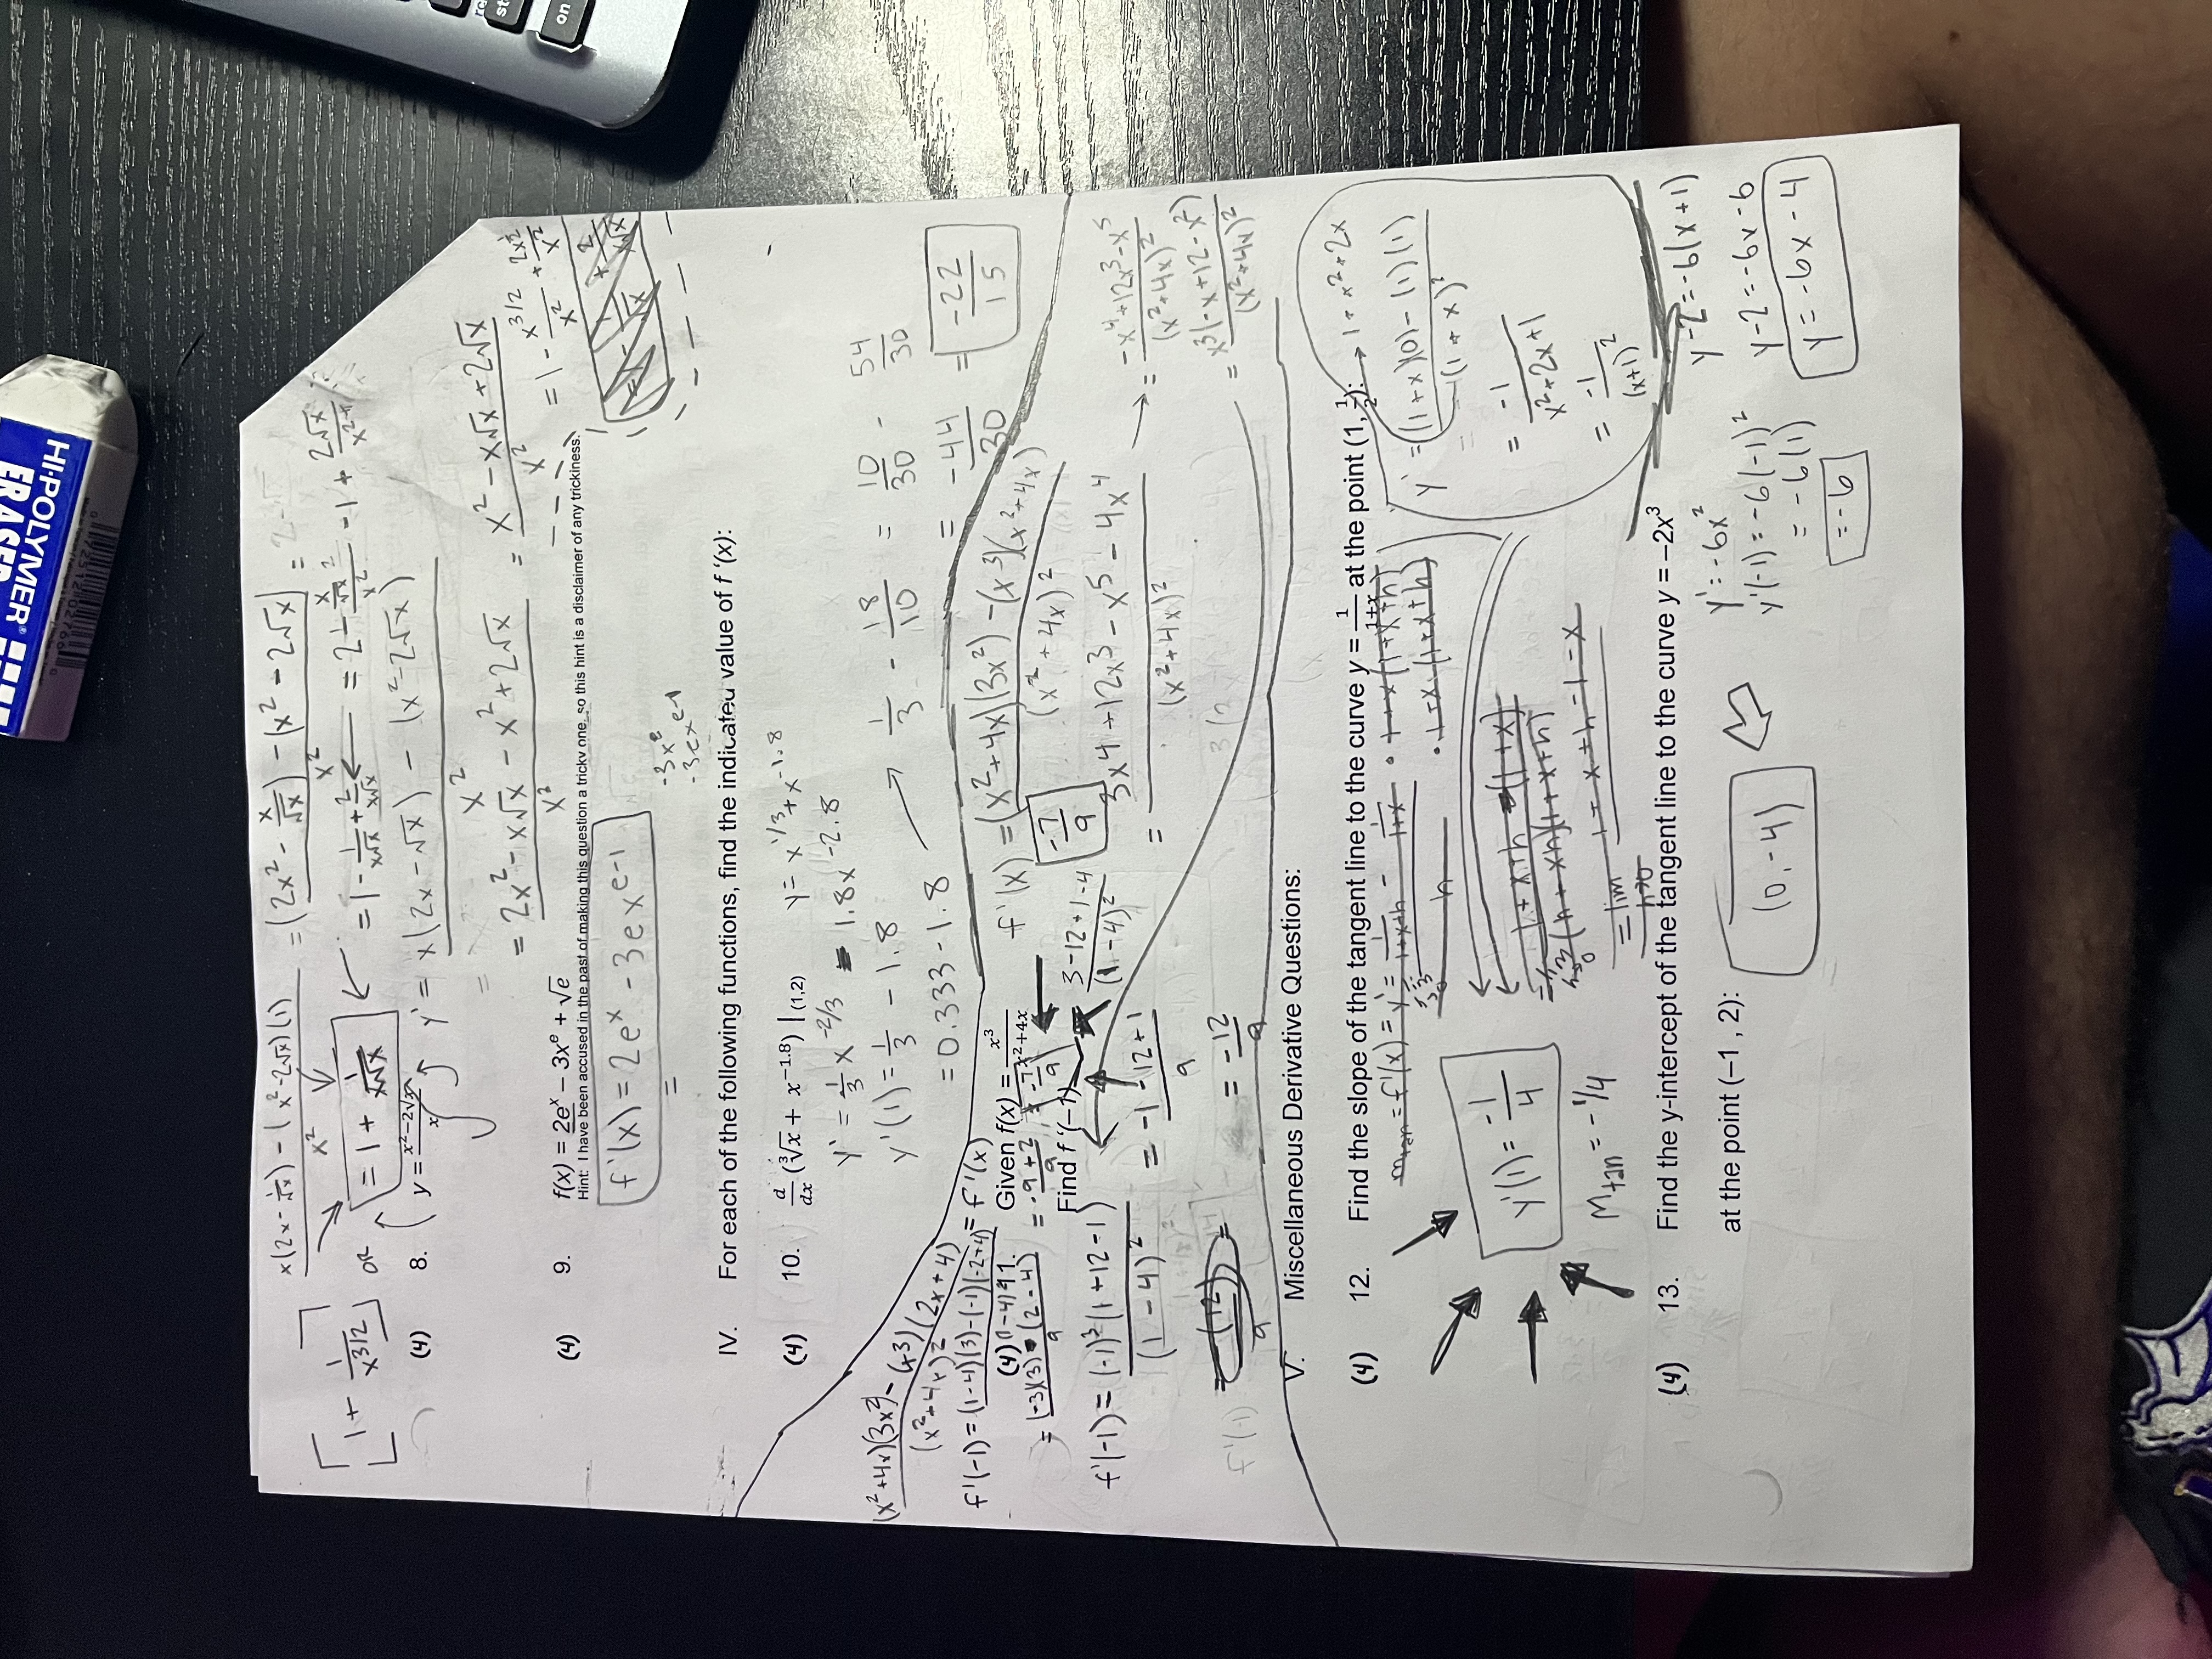 HI-POLYMER®
ERASER
on
x(2x - 1/√x) - (x² - 2√x)(1) / x² = (2x² - x/√x) - (x² - 2√x) / x² =
[1 + 1/x^{3/2}] OR = 1 + 1/x√x = 1 - 1/x√x + 2/x√x
(4) 8. y = x²−2√x / x
y' = x(2x - √x) - (x² - 2√x) / x²
= 2x² - x√x - x² + 2√x / x² = x² - x√x + 2√x / x²
= 1 - x^{3/2}/x² + 2x^{1/2}/x²
(4) 9. f(x) = 2e^x – 3x^e + √e
Hint: I have been accused in the past of making this question a tricky one, so this hint is a disclaimer of any trickiness.
f'(x) = 2e^x - 3ex^{e-1}
=
-3x^e
-3ex^{e-1}
IV. For each of the following functions, find the indicated value of f '(x):
(4) 10. d/dx (∛x + x^{−1.8}) |(1,2) y = x^{1/3} + x^{-1.8}
y' = 1/3 x^{-2/3} - 1.8x^{-2.8}
y'(1) = 1/3 - 1.8
= 0.333 - 1.8
1/3 - 18/10 = 10/30 - 54/30
= -44/30 = -22/15
(x²+4x)(3x²) - (x³)(2x+4) / (x²+4x)² = f'(x)
f'(-1) = (1-4)(3)-(-1)(-2+4) / (1-4)²
(4) 11. Given f(x) = x³ / x²+4x
= (-3)(3) - (2-4) / 9 = -9+2 / 9 = -7/9
Find f '(–1)
-7/9
f'(x) = (x²+4x)(3x²) - (x³)(x²+4x) / (x²+4x)²
3-12+1-4 / (1-4)²
= 3x⁴ + 12x³ - x⁵ - 4x⁴ / (x²+4x)²
= -x⁴+12x³-x⁵ / (x²+4x)²
= x³(-x+12-x²) / (x²+4x)²
f'(-1) = (-1)³(1+12-1) / (1-4)² = -1-12+1 / 9
f'(-1) = -(12) / 9 = = -12/9
V. Miscellaneous Derivative Questions:
(4) 12. Find the slope of the tangent line to the curve y = 1/1+x at the point (1, 1/2):
1 + x² + 2x
m_tan = f'(x) = y' = 1/1+x+h - 1/1+x · 1+x(1+x+h)
h · 1+x(1+x+h)
y' = (1+x)(0) - (1)(1) / (1+x)²
= -1 / x²+2x+1
= -1 / (x+1)²
y'(1) = -1/4
M_tan = -1/4
1+x+h -(1+x)
(h+xh)(1+x+h)
= lim h→0 1+x+h-1-x
(4) 13. Find the y-intercept of the tangent line to the curve y = –2x³
at the point (–1 , 2):
(0,-4)
y' = -6x²
y'(-1) = -6(-1)²
= -6(1)
= -6
y-2 = -6(x+1)
y-2 = -6x-6
y = -6x - 4